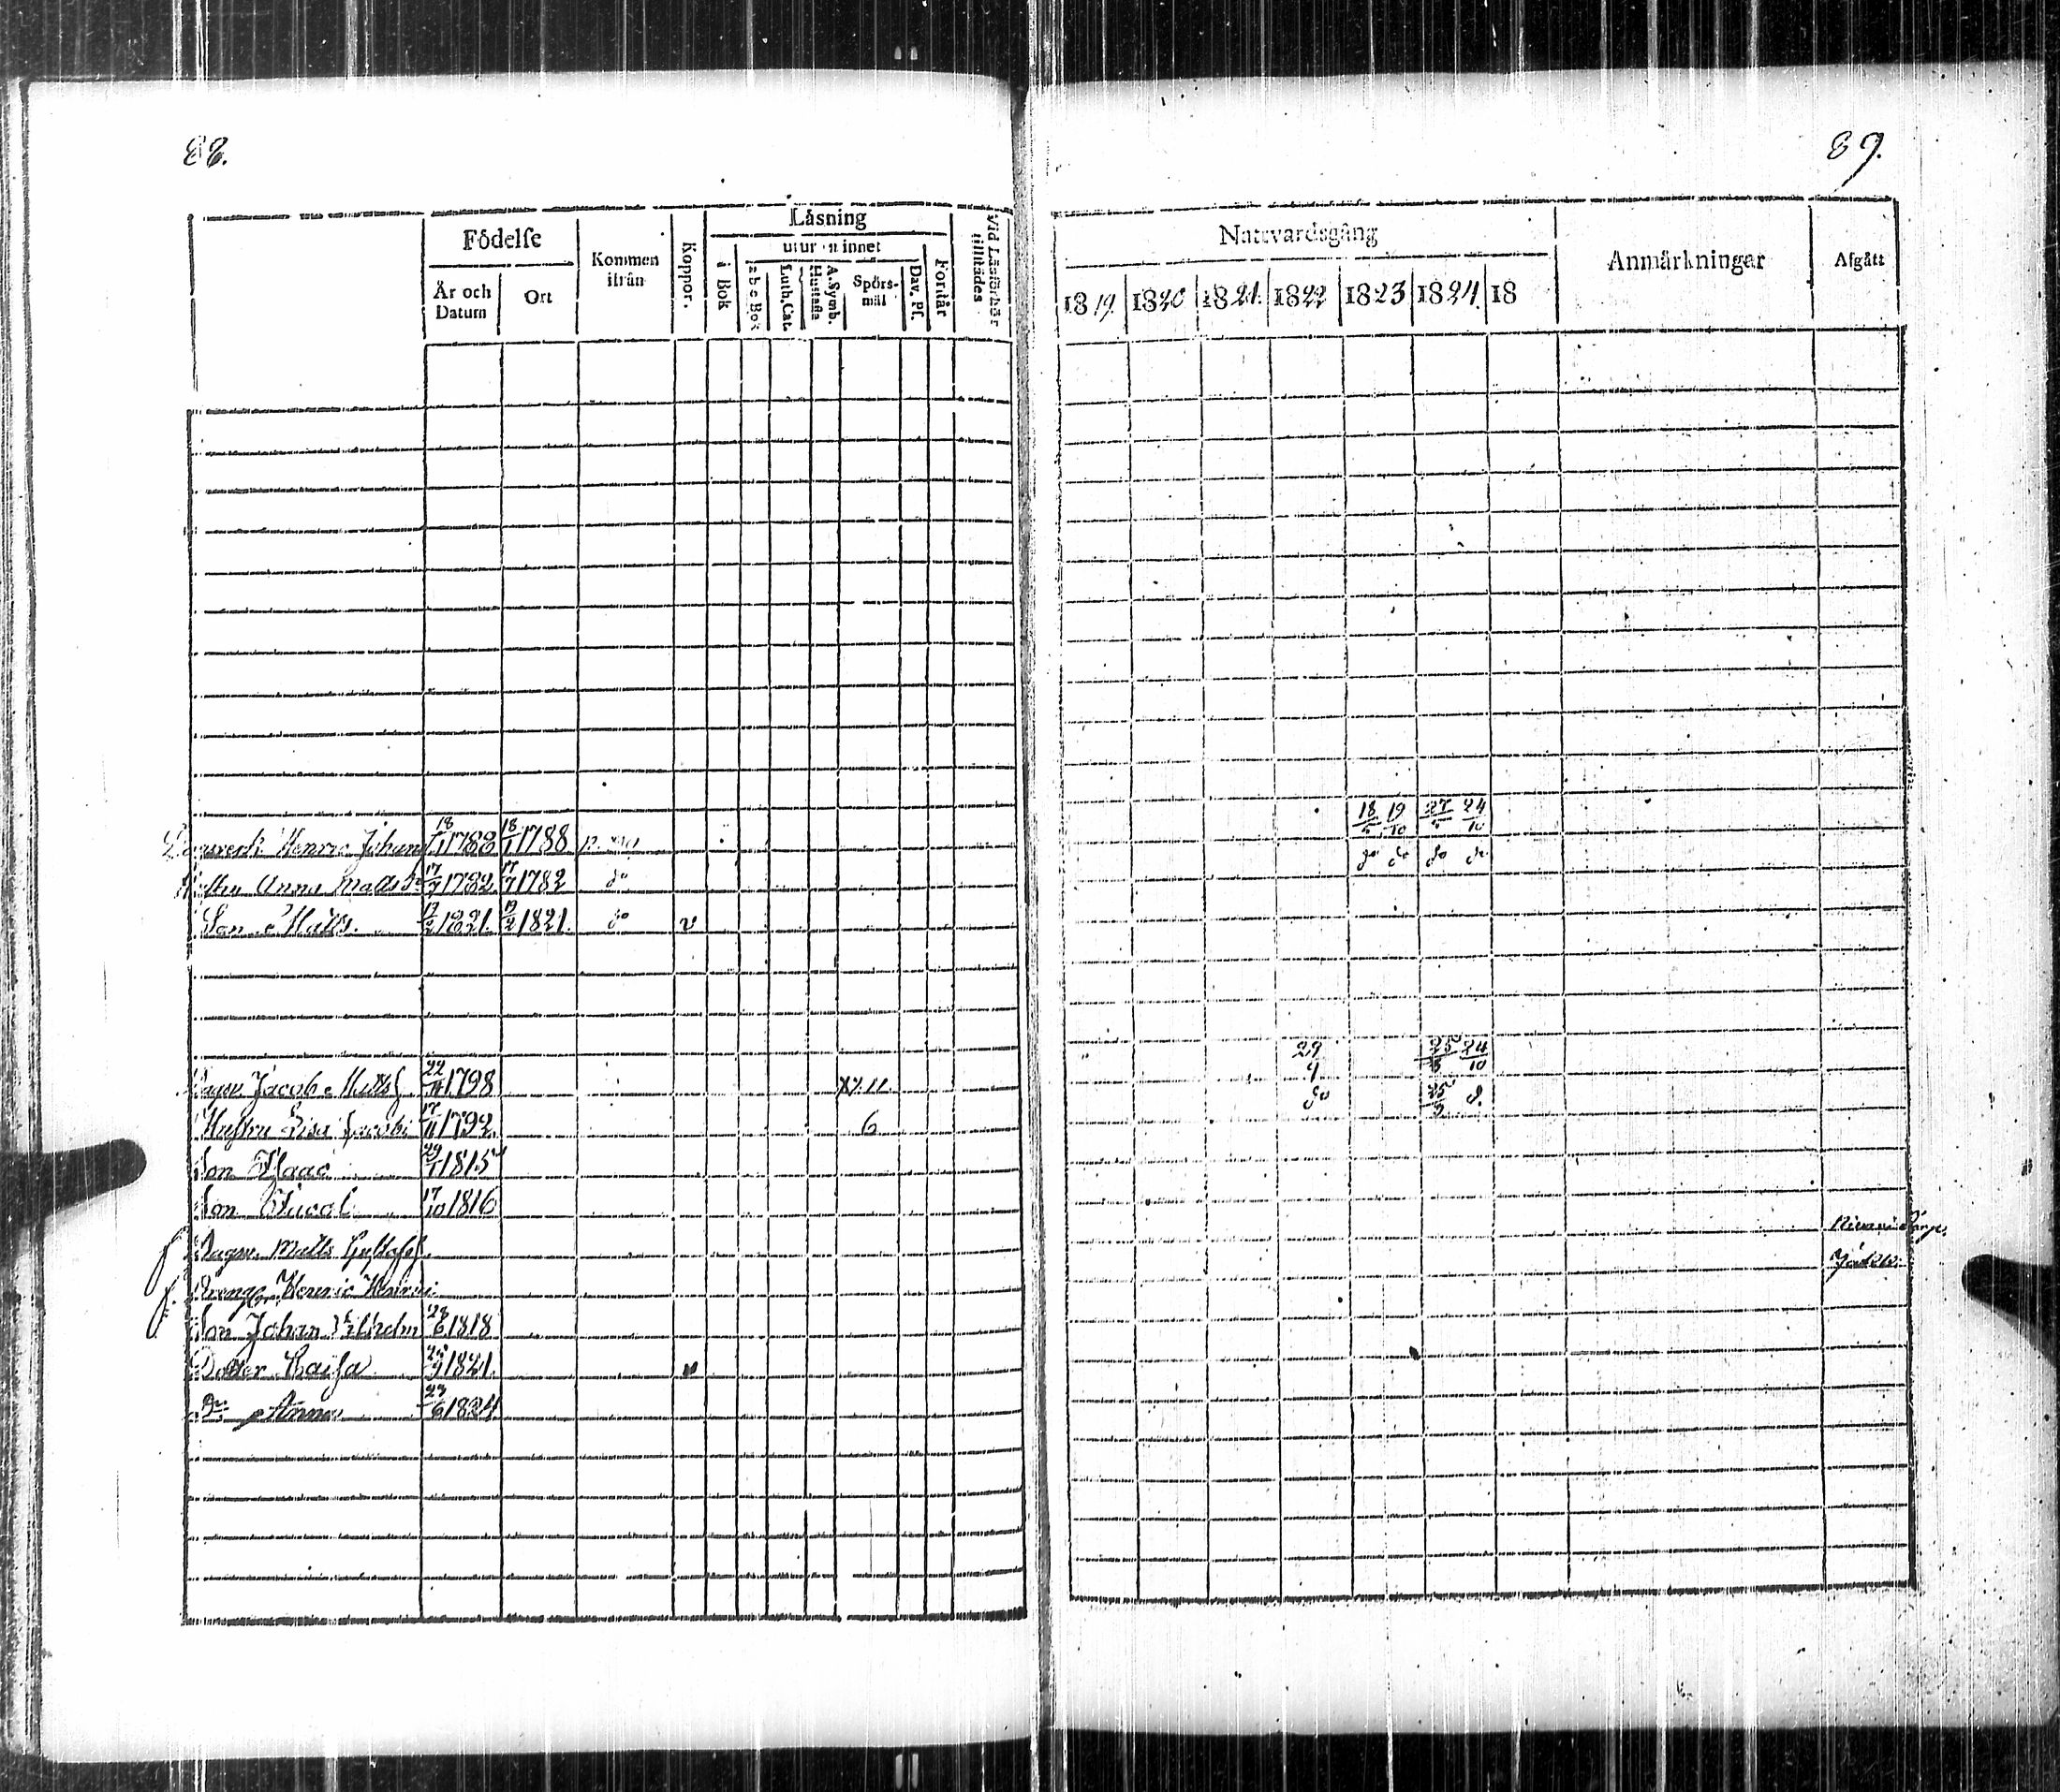 88.
Födelse
Kommen ifrån
Koppor.
Läsning
utur minnet
Vid Läsförhör tillstädes
År och Datum
Ort
i Bok
a b c Bok
Luth. Cat.
A. Symb. Hustafla
Spörsmål
Dav. Ps.
Förstår
Henric Johans 18/1 1788 18/1 1788
Anna Matts 17/7 1782 17/7 1782 do
Son Matts. 1821. 1821. do v
Jacob Matts 22/11 1798
Hustru Lisa Jacobs 17/11 1792 6
Son Isaac 29/1 1815
Son Jacob 17/10 1816
Matts Gustafs
Dreng Henric Henrics
Son Johan Vilhelm 28/6 1818
Doter Caisa 25/9 1821. v
Do Anna 23/6 1824
89.
Nattvardsgång
Anmärkningar
Afgått
1819. 1820 1821. 1822 1823 1824. 18
18 19/10 27 24/10
do do do do
29/9 25/3 24/10
do 25/3 d.